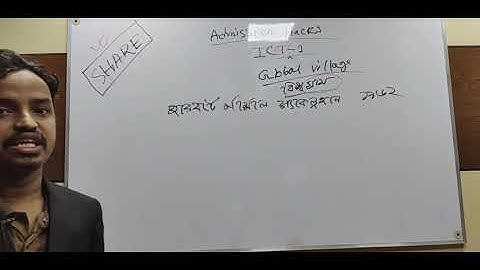 SHARE
Admission Hacks
ICT-1
Global Village
বিশ্বগ্রাম
হারবার্ট মার্শাল ম্যাকলুহান ১৯৬২